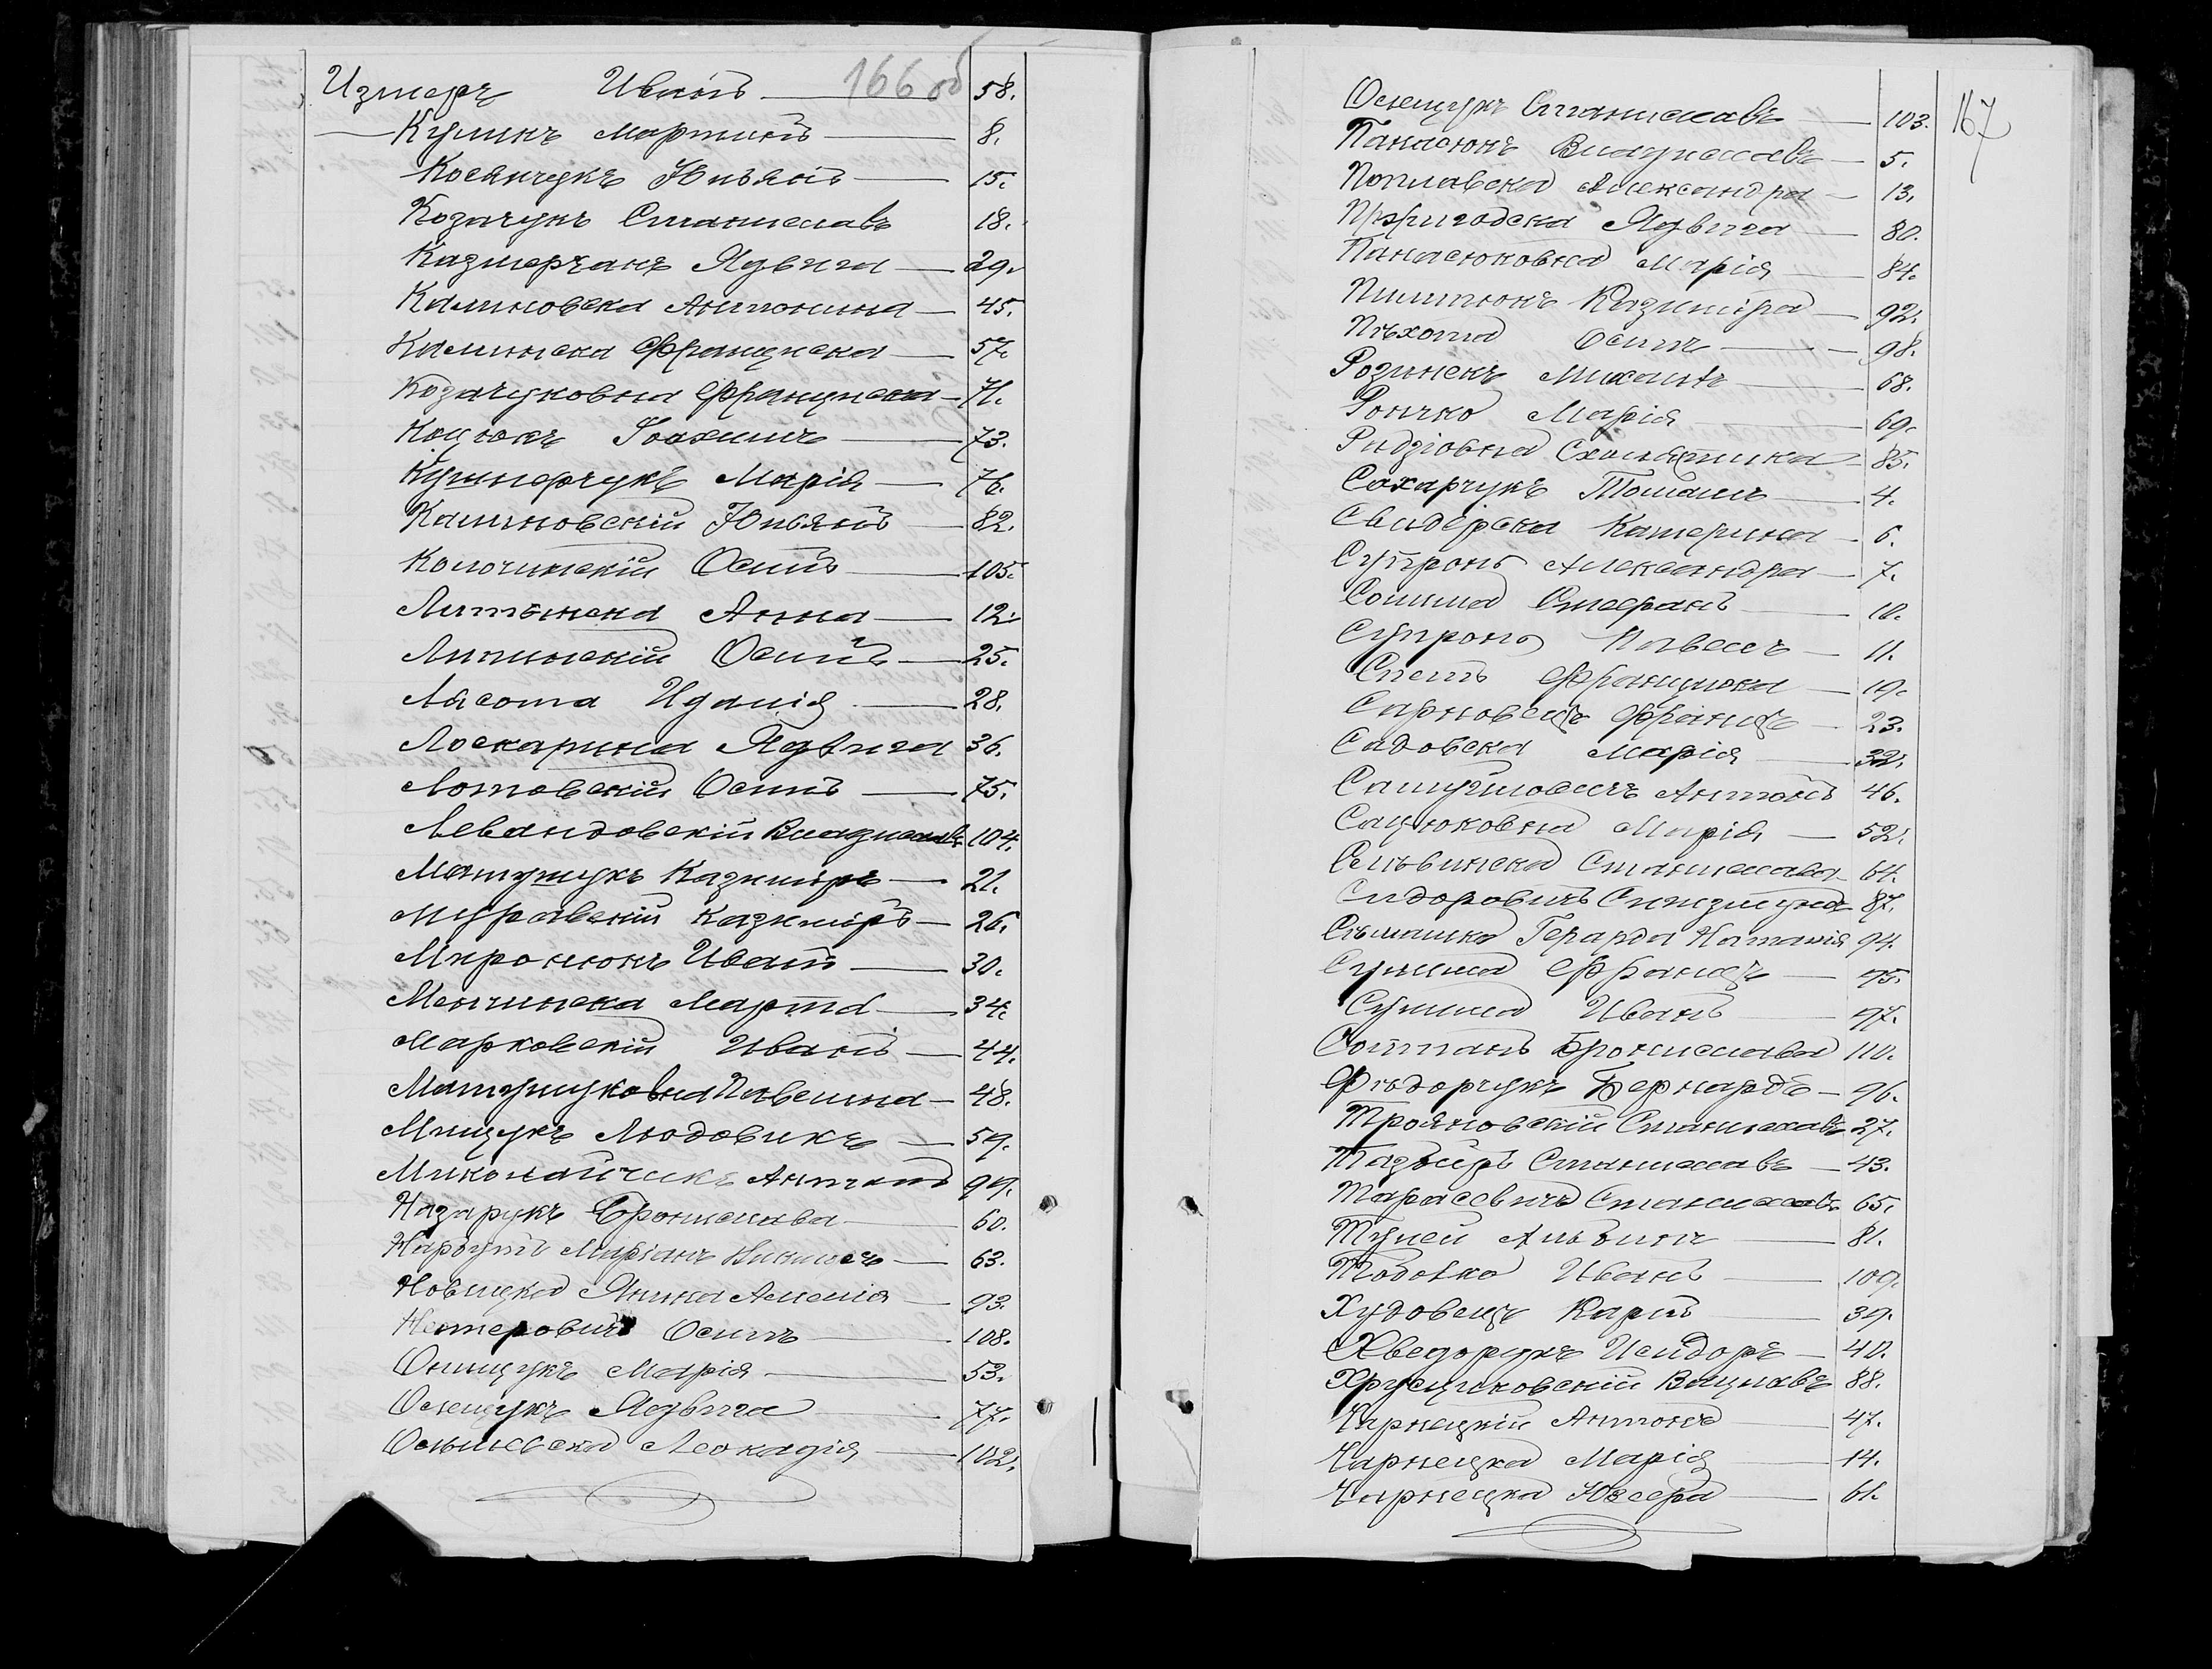 166 об
Измеръ Иванъ 58.
Куликъ Мартинъ 8.
Косянчукъ Юльянъ 15.
Козачукъ Станиславъ 18.
Казмерчакъ Ядвига 29.
Калиновска Антонина 45.
Калинска Францишка 57.
Козачуковна Францишка 71.
Коцюкъ Іоахимъ 73.
Кушнерчукъ Марія 76.
Калиновскій Юльянъ 82.
Колочинскій Осипъ 105.
Литынска Анна 12.
Липинскій Осипъ 25.
Лясота Идалія 28.
Лоскарина Ядвига 36.
Лотовскій Осипъ 75.
Левандовскій Владиславъ 104.
Матушукъ Казиміръ 21.
Муравскій Казиміръ 26.
Миронюкъ Иванъ 30.
Менчинска Марта 34.
Марковскій Иванъ 44.
Матушуковна Павелина 48.
Мищукъ Людовикъ 59.
Миколайчикъ Антонъ 99.
Назарукъ Брониславъ 60.
Нарбутъ Маріанъ 63.
Новицка Янина Амелія 93.
Нестеровичъ Осипъ 108.
Онищукъ Марія 53.
Олещукъ Ядвига 77.
Ольшевска Леокадія 102.
167
Олещукъ Станиславъ 103.
Панасюкъ Владиславъ 5.
Поплавска Александра 13.
Пржигодска Ядвига 80.
Панасюковна Марія 84.
Пилипюкъ Казиміра 92.
Пѣхота Осипъ 98.
Розинекъ Михаилъ 68.
Рончко Марія 69.
Ридзіовна Схоластика 85.
Сахарчукъ Томашъ 4.
Свидерска Катерина 6.
Супронъ Александра 7.
Солима Стефанъ 10.
Супронъ Павелъ 11.
Францишка 19.
Сарновецъ Францъ 23.
Садовска Марія 32.
Самуйловичъ Антонъ 46.
Сацюковна Марія 52.
Сельвинска Станислава 64.
Сидоровичъ Сигизмундъ 87.
Сѣмашко Герарда Наталія 94.
Сулима Францъ 95.
Сулима Иванъ 97.
Солтанъ Бронислава 110.
Фѣдорчукъ Бернардъ 96.
Трояновскій Станиславъ 27.
Станиславъ 43.
Тарасевичъ Станиславъ 65.
Тупей Альбинъ 81.
Тоболка Иванъ 109.
Худовецъ Карлъ 39.
Хведорукъ Исидоръ 40.
Хрусциковскій Вацлавъ 88.
Чарнецкій Антонъ 47.
Чарнецка Марія 14.
Чарнецка Юзефа 61.